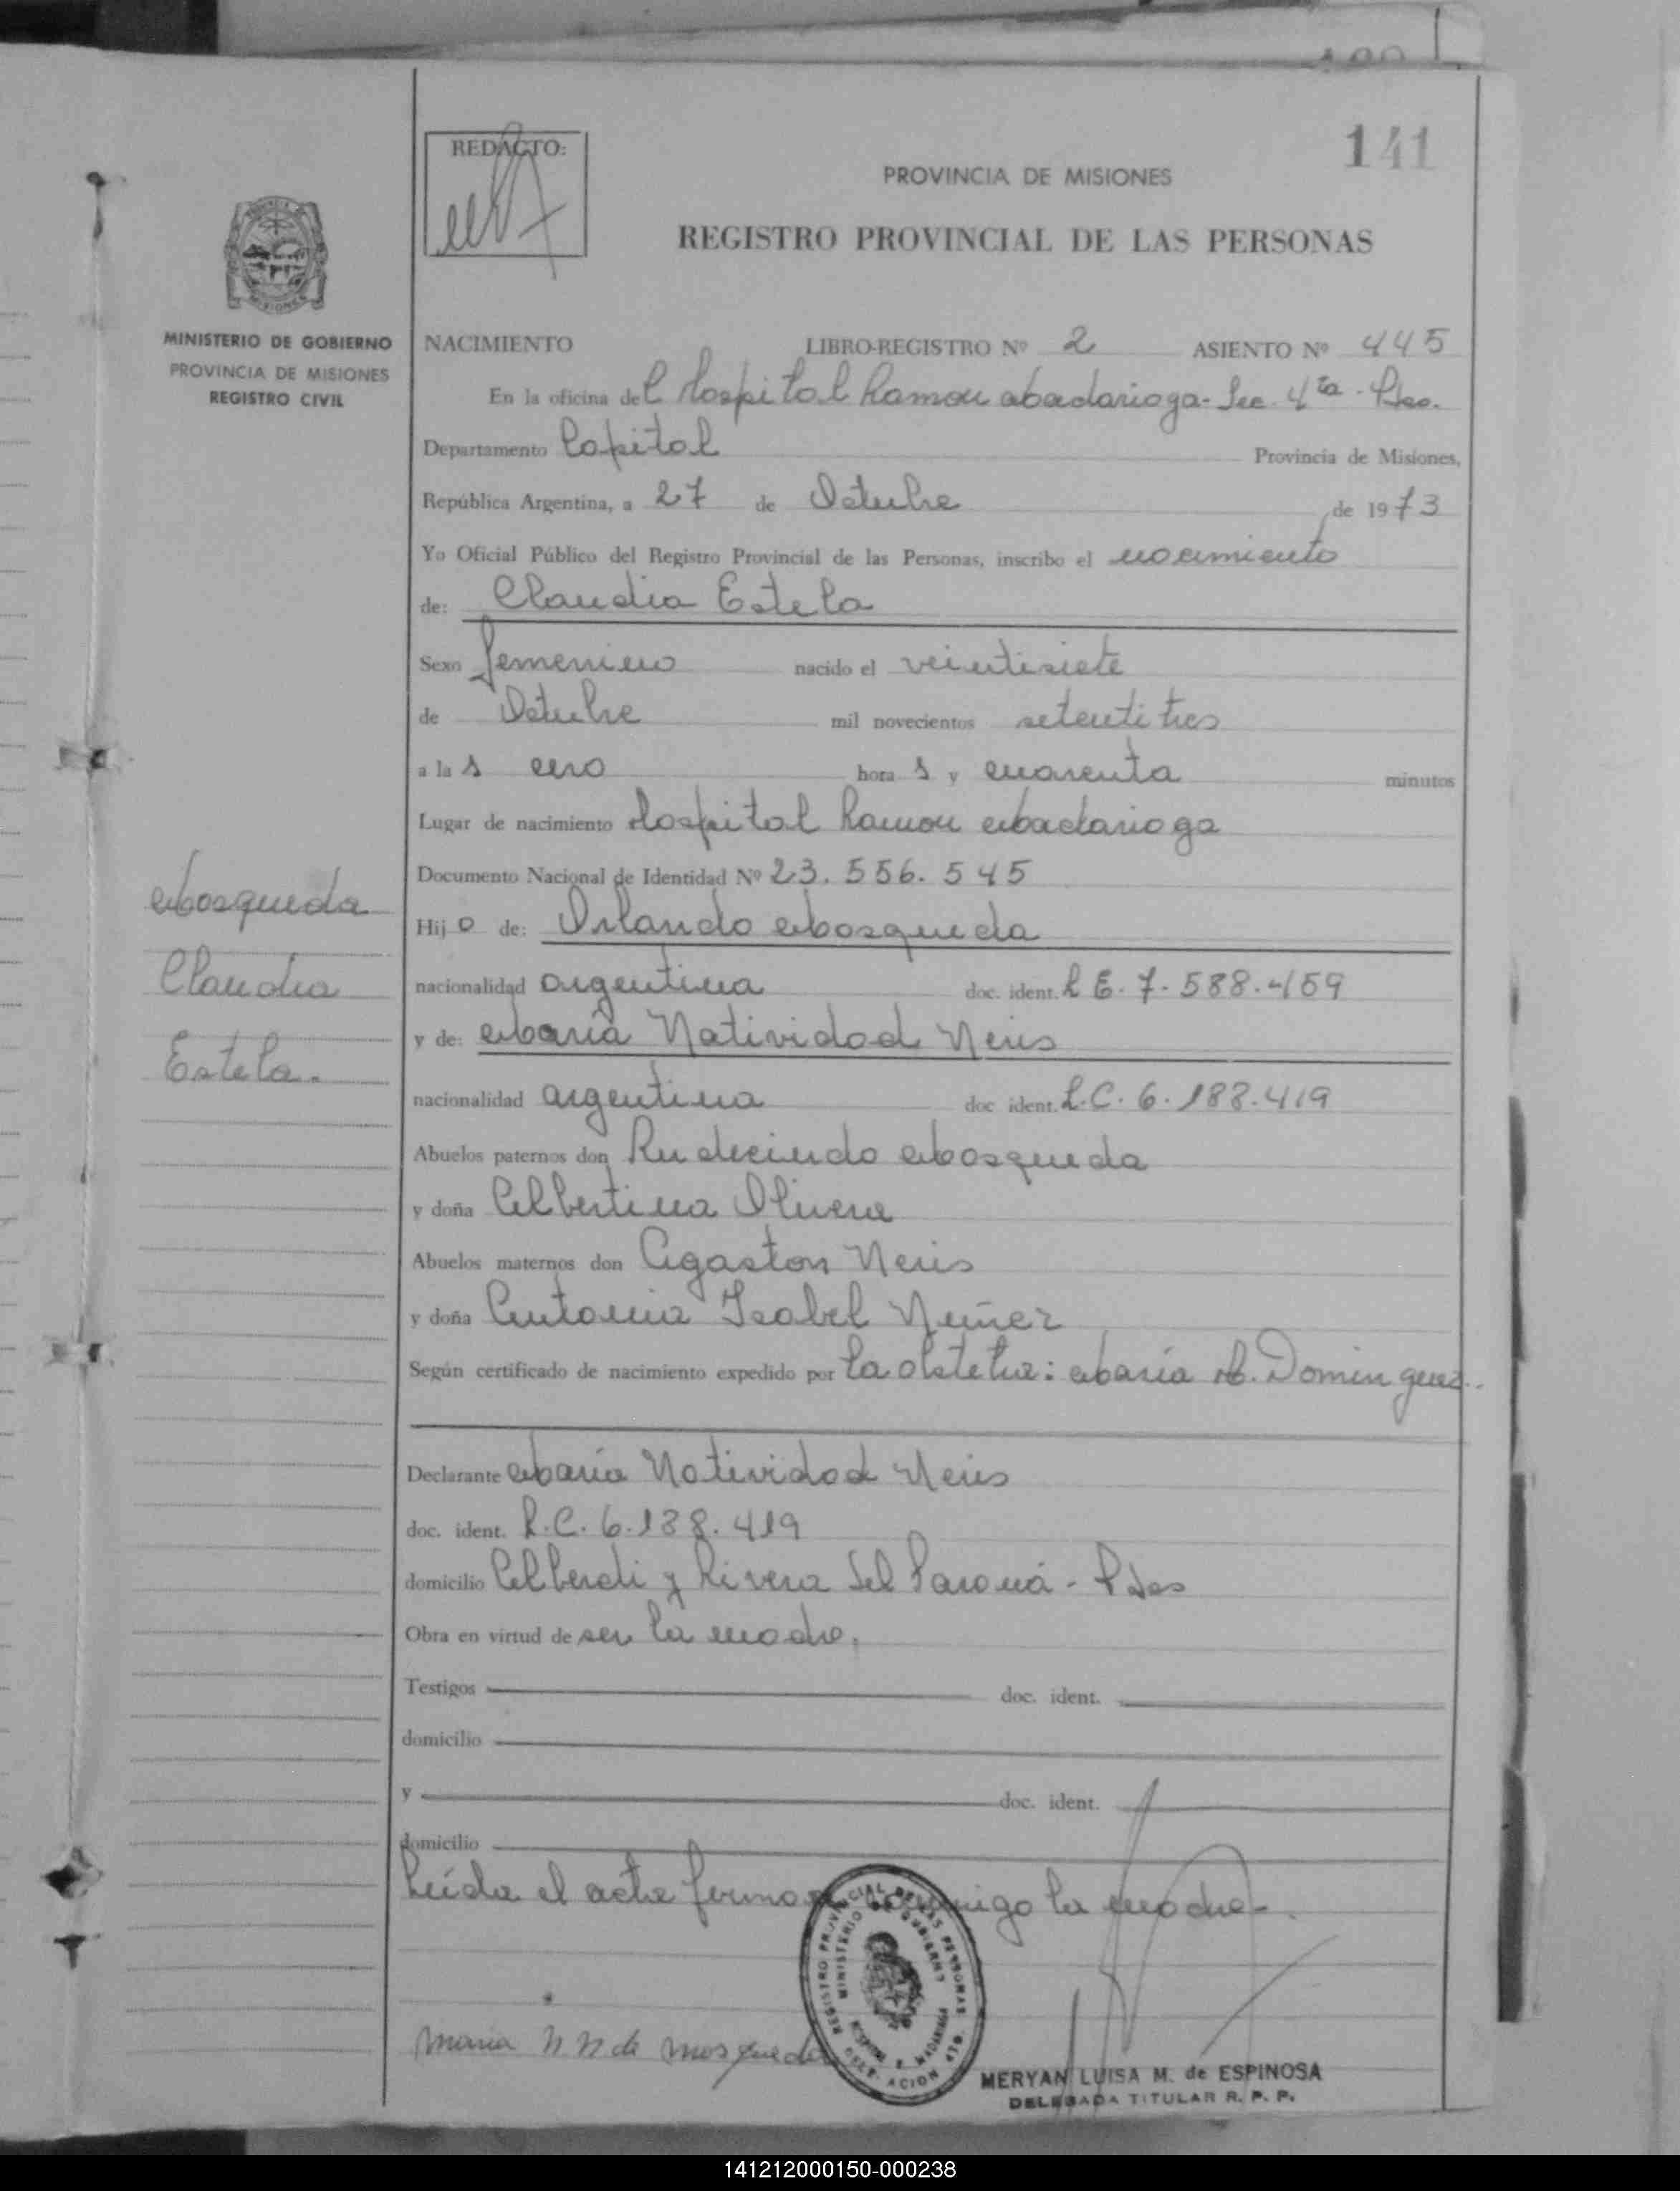 141
REDACTO:
PROVINCIA DE MISIONES
REGISTRO PROVINCIAL DE LAS PERSONAS
MINISTERIO DE GOBIERNO
PROVINCIA DE MISIONES
REGISTRO CIVIL
NACIMIENTO LIBRO-REGISTRO Nº 2 ASIENTO Nº 445
En la oficina del Hospital Ramon Madariaga - Sec. 4ta - Pdas.
Departamento Capital Provincia de Misiones,
República Argentina, a 27 de Octubre de 1973
Yo Oficial Público del Registro Provincial de las Personas, inscribo el nacimiento
de: Claudia Estela
Sexo femenino nacido el veintisiete
de Octubre mil novecientos setentitres
a las cero horas y cuarenta minutos
Lugar de nacimiento Hospital Ramon Madariaga
Documento Nacional de Identidad Nº 23.556.545
Mosqueda
Claudia
Estela.
Hijo de: Orlando Mosqueda
nacionalidad argentina doc. ident. L E. 7.588.459
y de: María Natividad Neris
nacionalidad argentina doc ident. L.C. 6.188.419
Abuelos paternos don Rudecindo Mosqueda
y doña Albertina Olivera
Abuelos maternos don Agaston Neris
y doña Antonia Isabel Nuñez
Según certificado de nacimiento expedido por la obstetra: María M. Dominguez.
Declarante María Natividad Neris
doc. ident. L.C. 6.138.419
domicilio Alberdi y Rivera del Paraná - Pdas
Obra en virtud de ser la madre.
Testigos doc. ident.
domicilio
y doc. ident.
domicilio
Leída el acta firma conmigo la madre-.
Maria N N de Mosqueda
REGISTRO PROVINCIAL DE LAS PERSONAS
MINISTERIO DE GOBIERNO
MERYAN LUISA M. de ESPINOSA
DELEGADA TITULAR R. P. P.
141212000150-000238